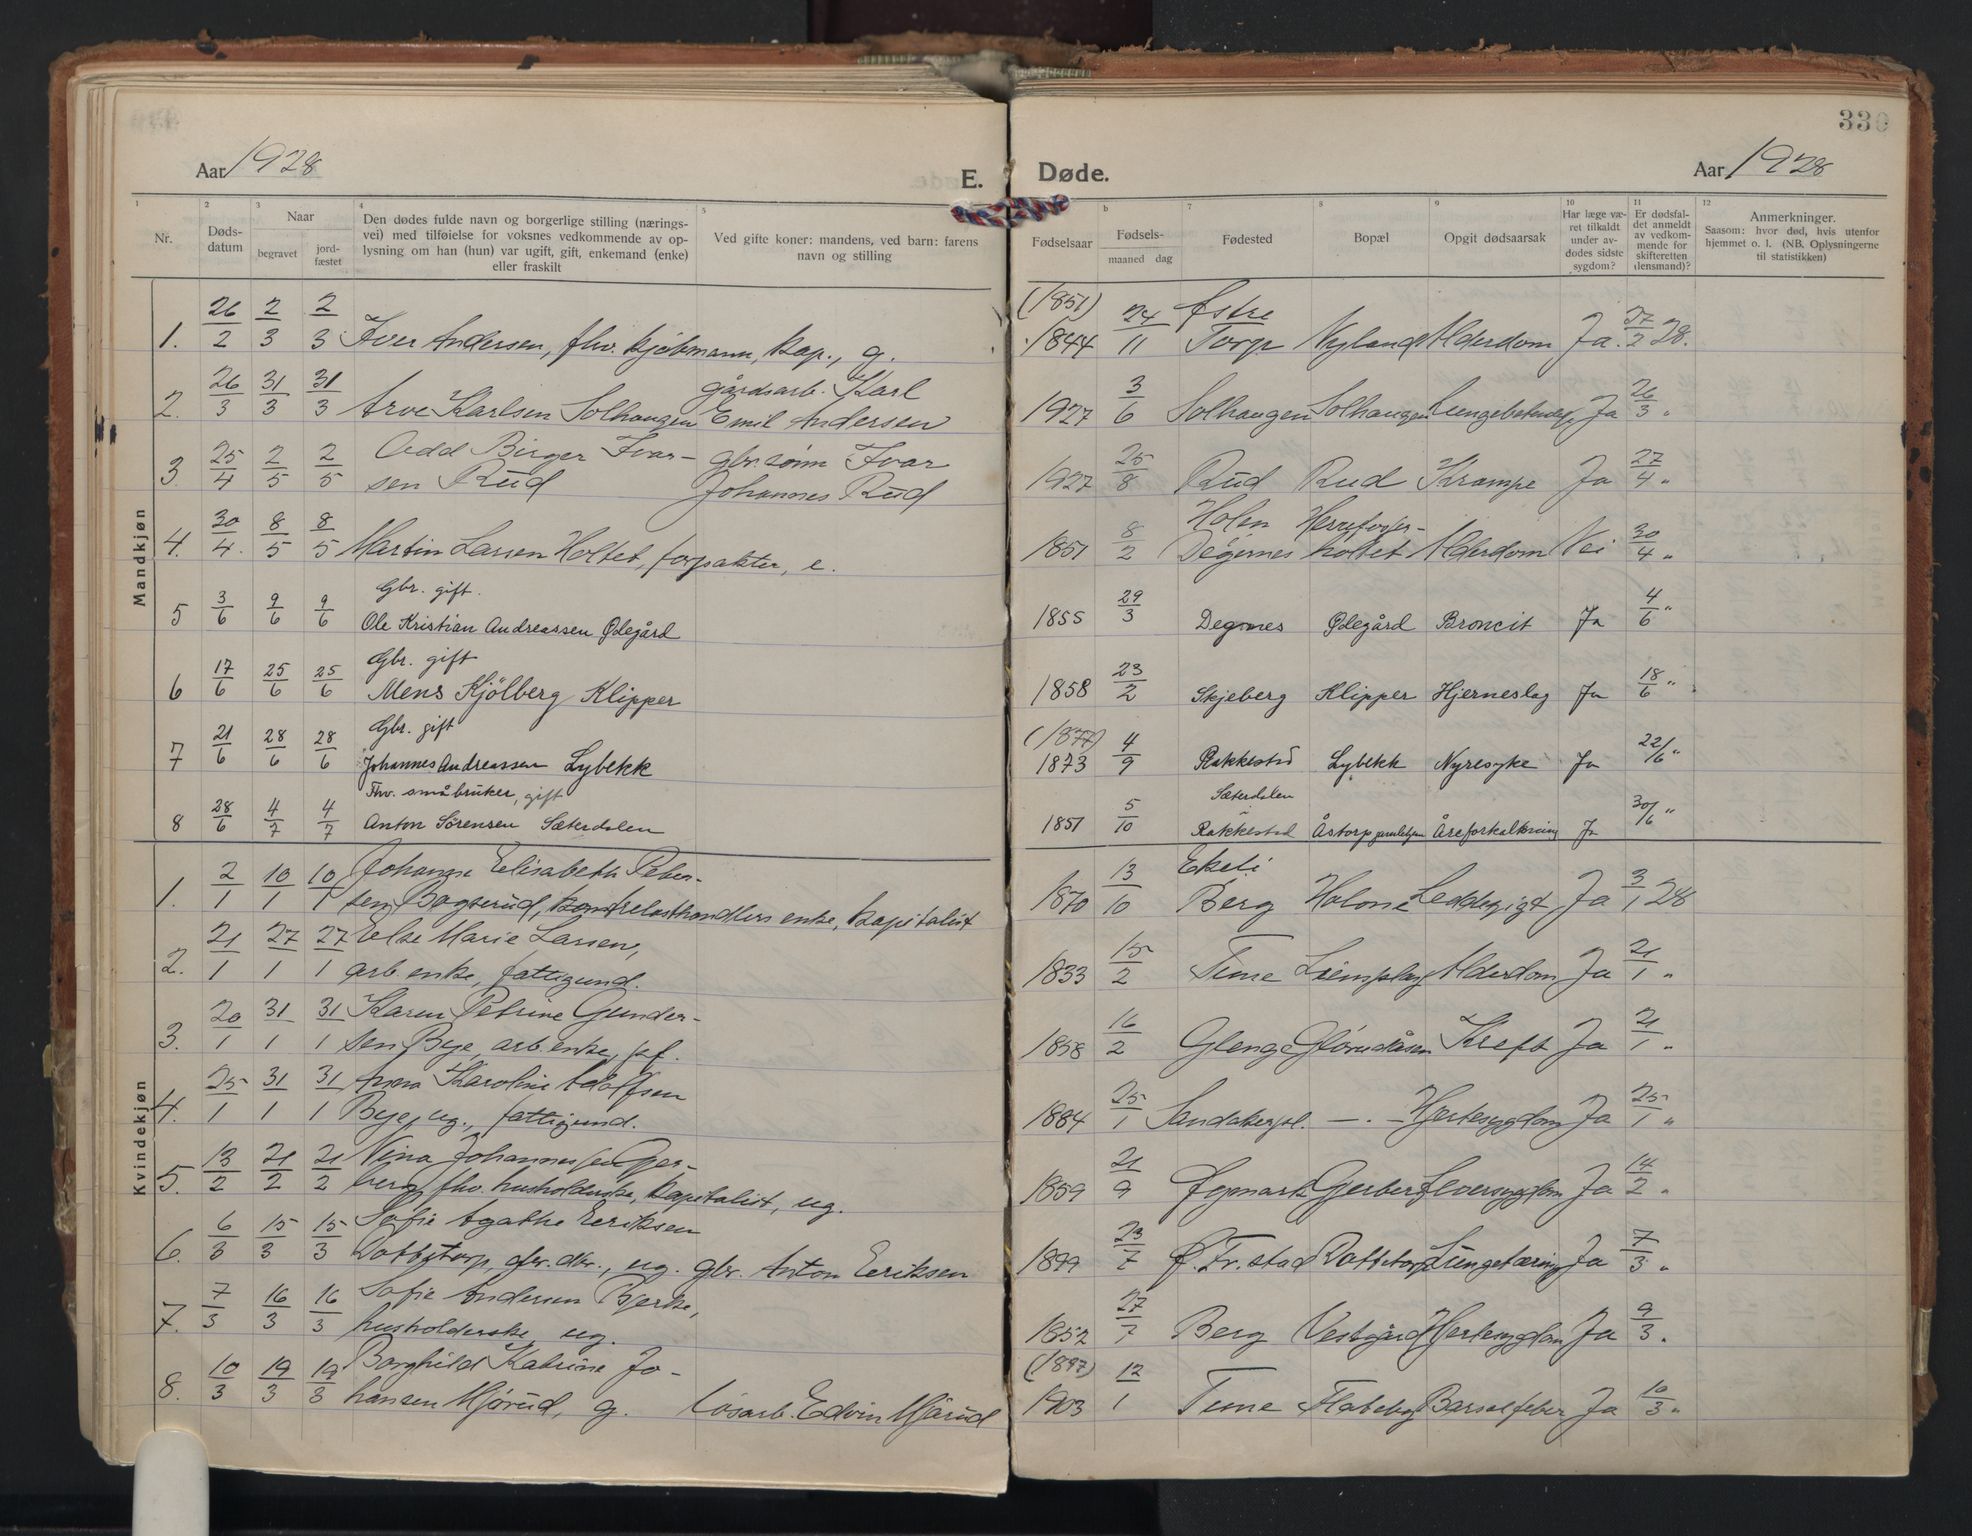 330
Aar 1928
E.
Døde.
Aar 1928
1 2 3 4 5 6 7 8 9 10 11 12
Nr.
Døds-
datum
Naar
begravet
jord-
fæstet
Den dødes fulde navn og borgerlige stilling (nærings-
vei) med tilføielse for voksnes vedkommende av op-
lysning om han (hun) var ugift, gift, enkemand (enke)
eller fraskilt
Ved gifte koner: mandens, ved barn: farens
navn og stilling
Fødselsaar
Fødsels-
maaned dag
Fødested
Bopæl
Opgit dødsaarsak
Har læge væ-
ret tilkaldt
under av-
dødes sidste
sygdom?
Er dødsfal-
det anmeldt
av vedkom-
mende for
skifteretten
(lensmand)?
Anmerkninger.
Saasom: hvor død, hvis utenfor
hjemmet o. l. (NB. Oplysningerne
til statistikken)
Mandkjøn
1. 26/2 2/3 2/3 Iver Andersen, fhv. kjøbmann, kap., g. (1851) 1844 24/11 Østre Torp Nyland Alderdom Ja. 27/2 28.
2. 26/3 31/3 31/3 Arve Karlsen Solhaugen gårdsarb. Karl
Emil Andersen 1927 3/6 Solhaugen Solhaugen Ja 26/3 "
3. 25/4 2/5 2/5 Odd Birger Ivar-
sen Rud gbr. sønn Ivar
Johannes Rud 1927 25/8 Rud Rud Krampe Ja 27/4 "
4. 30/4. 8/5 8/5 Martin Larsen Holtet, forpakter, e. 1851 8/2 Holen Degernes holtet Alderdom Nei 30/4 "
5 3/6 9/6 9/6 Gbr. gift.
Ole Kristian Andreassen Ødegård 1855 29/3 Degernes Ødegård Broncit Ja 4/6 "
6 17/6 25/6 25/6 Gbr. gift
Mens Kjölberg Klipper 1858 23/2 Skjeberg Klipper Hjerneslag Ja 18/6 "
7 21/6 28/6 28/6 Gbr. gift
Johannes Andreassen Lybekk (1877) 1873 4/9 Rakkestad Lybekk Nyresyke Ja 22/6 "
8 28/6 4/7 4/7 Fhv. småbruker, gift
Anton Sörensen Sæterdalen 1851 5/10 Sæterdalen Rakkestad Åstorp gamlehjem Åreforkalkning Ja 30/6 "
Kvindekjøn
1. 2/1 10/1 10/1 Johanne Elisabeth Peter-
sen Bogserud, enke, kapitalist 1870 13/10 Ekeli Berg Holone Leddegigt Ja 3/1 28
2. 21/1 27/1 27/1 Else Marie Larsen,
arb. enke, fattigund. 1833 15/2 Tune Alderdom Ja 21/1 "
3. 20/1 31/1 31/1 Karen Petrine Gunder-
sen Bye, arb. enke, 1858 16/2 Glenge Kreft Ja 21/1 "
4. 25/1 31/1 31/1 Anna Karoline Adolfsen
Bye, ug., fattigund. 1884 25/1 Sandakerpl. — . — Hjertesygdom Ja 25/1 "
5. 13/2 21/2 21/2 Nina Johannessen Ger-
berg, fhv. husholderske, kapitalist, ug. 1859 21/9 Øymark Gerberg Leversygdom Ja 14/2 "
6. 6/3 15/3 15/3 Sofie Agathe Eriksen
Rottetorp, gbr. dtr., ug. gbr. Anton Eriksen 1899 23/7 Ø. Fr.stad Rottetorp Lungetæring Ja 7/3 "
7. 7/3 16/3 16/3 Sofie Andersen Bjerke,
husholderske, ug. 1852 27/7 Berg Vestgård Hjertesygdom Ja 9/3.
8. 10/3 19/3 19/3 Borghild Katrine Jo-
hansen Mjørud, g. løsarb. Edvin Mjørud (1897) 1903 12/1 Tune Barselfeber Ja 10/3 "